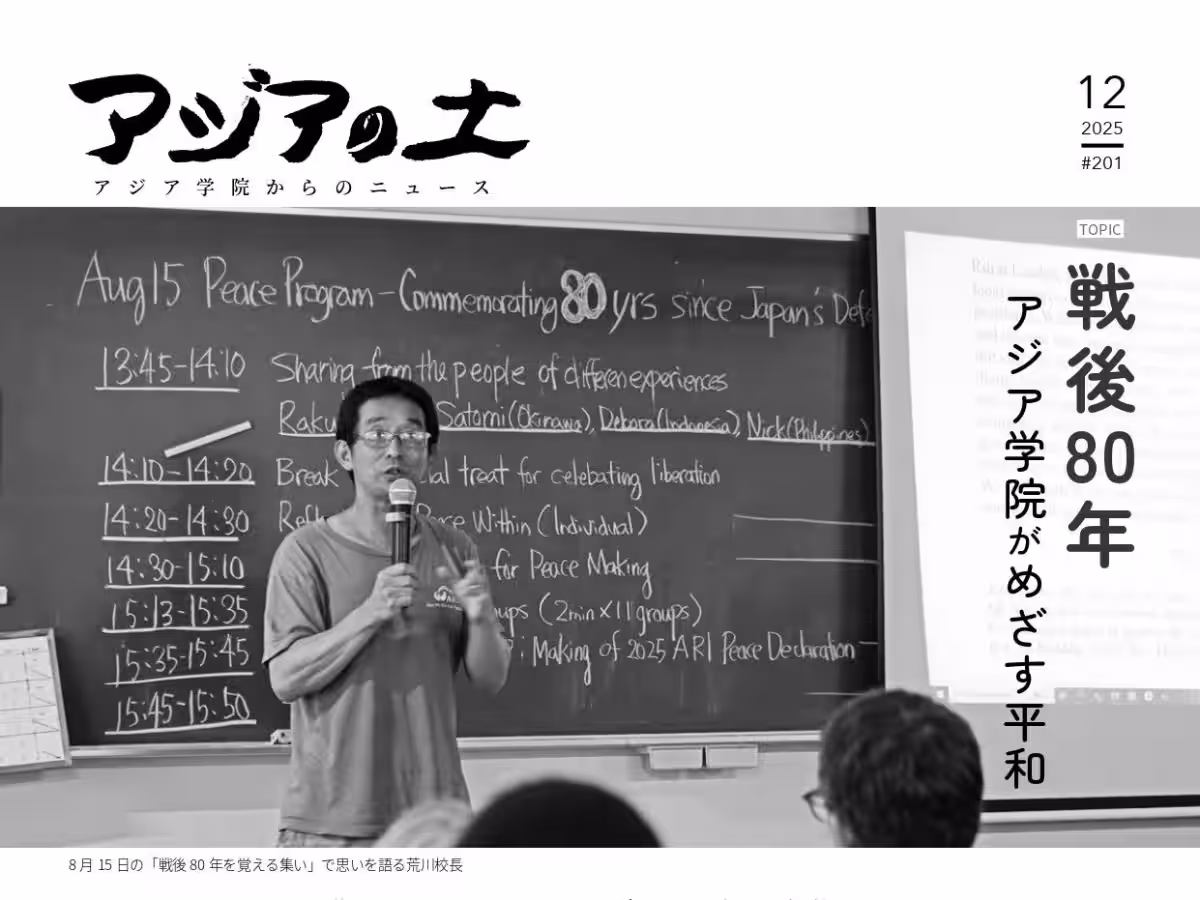 アジアの土
アジア学院からのニュース
12
2025
#201
TOPIC
戦後80年
アジア学院がめざす平和
Aug 15 Peace Program - Commemorating 80 yrs since Japan's Defe
13:45-14:10 Sharing from the people of differen experiences
Raku Satomi (Okinawa), Debora (Indonesia), Nick (Philippines)
14:10-14:20 Break al treat for celebating liberation
14:20-14:30 Refl Within (Individual)
14:30-15:10 for Peace Making
15:13-15:35 ups (2min×11 groups)
15:35-15:45 : Making of 2025 ARI Peace Declaration
15:45-15:50
8月15日の「戦後80年を覚える集い」で思いを語る荒川校長